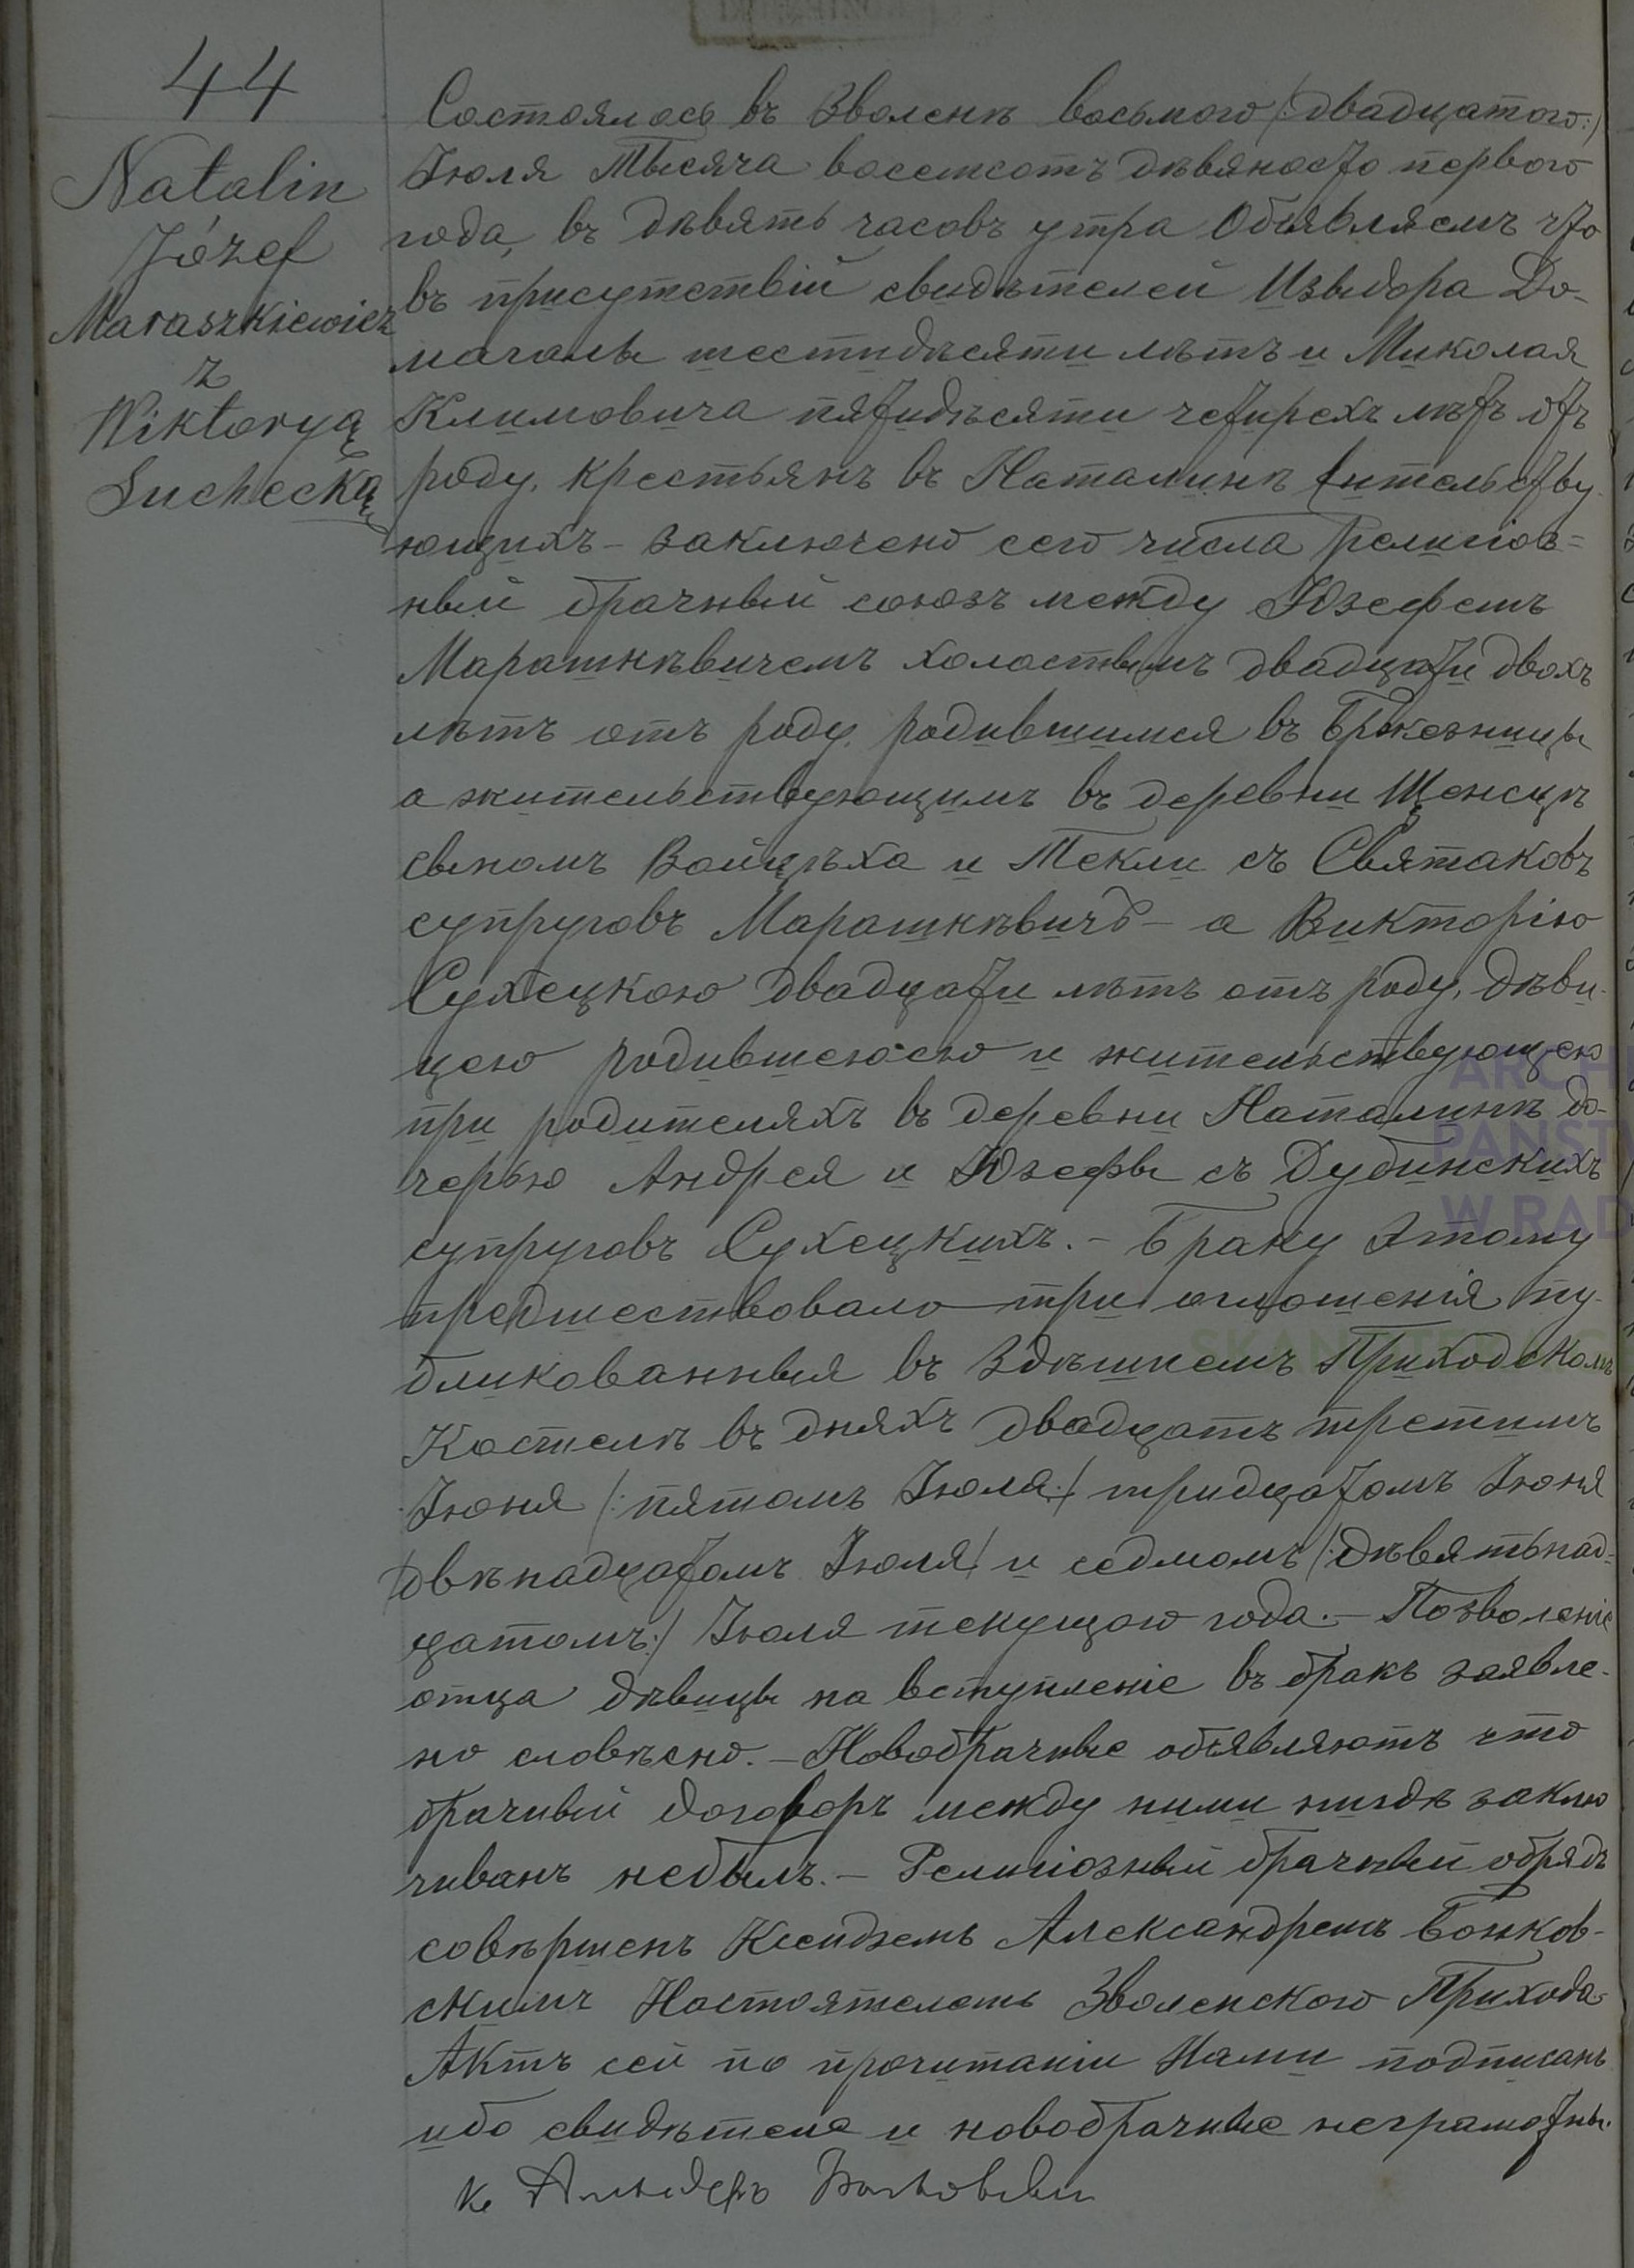 44
Natalin
Józef
Maraszkiewicz
z
Wiktoryą
Suchecką
Состоялось въ Зволенѣ восьмого /:двадцатого:/
Іюля Тысяча восемсотъ дѣвяносто первого
года, въ дѣвять часовъ утра Объявляемъ что
въ присутствіи свидѣтелей Изыдора До-
магалы шестидѣсяти лѣтъ и Миколая
Климовича пятидѣсяти четырехъ лѣтъ отъ
роду, крестьянъ въ Наталинѣ жительству-
ющихъ – заключено сего числа религіоз=
ный брачный союзъ между Юзефемъ
Марашкѣвичемъ холостымъ двадцати двохъ
лѣтъ отъ роду, родившимся въ Бржезницы
а жительствующимъ въ деревни Щенсцѣ
сыномъ Войцѣха и Текли съ Святаковъ
супруговъ Марашкѣвичъ – а Викторію
Сухецкою двадцати лѣтъ отъ роду, дѣви-
цею родившеюсею и жительствующею
при родителяхъ въ деревни Наталинѣ до-
черью Андрея и Юзефы съ Дубинскихъ
супруговъ Сухецкихъ. – Браку этому
предшествовало три оглошенія пу-
бликованныя въ Здѣшнемъ Приходскомъ
Костелѣ въ дняхъ двадцать третимъ
Іюня /:пятомъ Іюля:/ тридцатомъ Іюня
/двѣнадцатомъ Іюля/ и седмомъ /:дѣвятьнад-
цатомъ:/ Іюля текущого года. – Позволеніе
отца дѣвицы на вступленіе въ бракъ заявле-
но словѣсно. – Новобрачные объявляютъ что
брачный договоръ между ними нигдѣ заклю
чиванъ небылъ. – Религіозный брачный обрядъ
совѣршенъ Ксендземъ Александремъ Бонков-
скимъ Настоятелемъ Зволенского Прихода
Актъ сей по прочитаніи Нами подписанъ
ибо свидѣтеле и новобрачные неграмотны.
ARCHI
PAŃSTW
W RAD